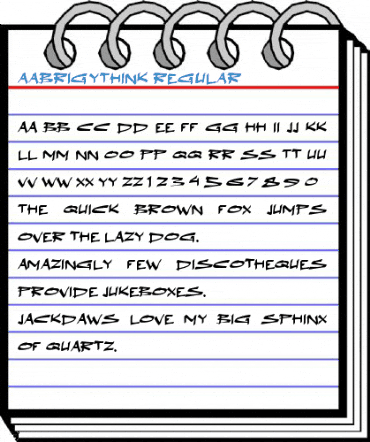 AABRIGYTHINK REGULAR
AA BB CC DD EE FF GG HH II JJ KK
LL MM NN OO PP QQ RR SS TT UU
VV WW XX YY ZZ 1 2 3 4 5 6 7 8 9 0
THE QUICK BROWN FOX JUMPS
OVER THE LAZY DOG.
AMAZINGLY FEW DISCOTHEQUES
PROVIDE JUKEBOXES.
JACKDAWS LOVE MY BIG SPHINX
OF QUARTZ.